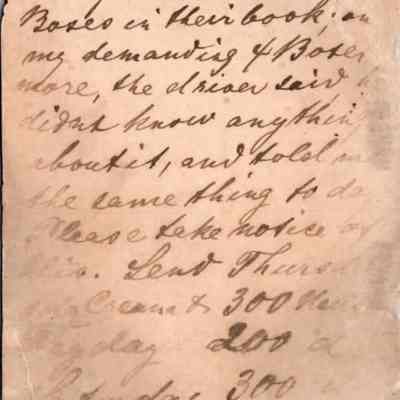 Boxes in their book; on
my demanding 4 Boxes
more, the driver said
didnt know anything
about it, and told me
the same thing to day
Please take notice of
this. Send Thursday
Cream & 300
Friday 200
Saturday 300